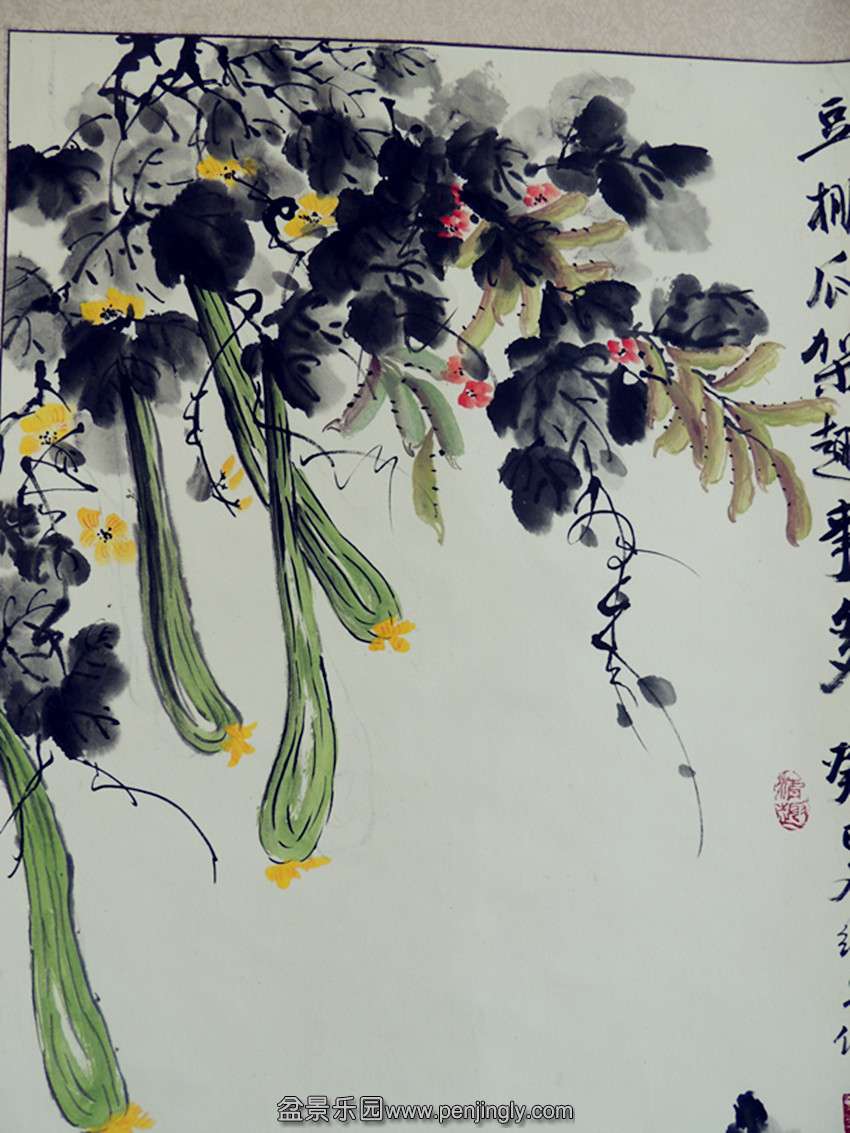 豆棚瓜架趣事多 癸巳
盆景乐园www.penjingly.com